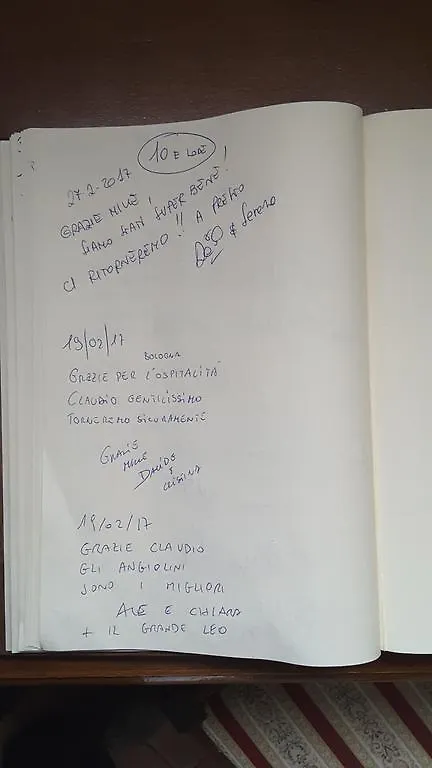 10 E LODE
27-2-2017
GRAZIE MILLE!
SIAMO STATI SUPER BENE!
CI RITORNEREMO!! A PRESTO
& Serena
19/02/17
BOLOGNA
GRAZIE PER L'OSPITALITÀ
CLAUDIO GENTILISSIMO
TORNEREMO SICURAMENTE
GRAZIE
MILLE
DAVIDE
& CRISTINA
19/02/17
GRAZIE CLAUDIO
GLI ANGIOLINI
SONO I MIGLIORI
ALE E CHIARA
+ IL GRANDE LEO